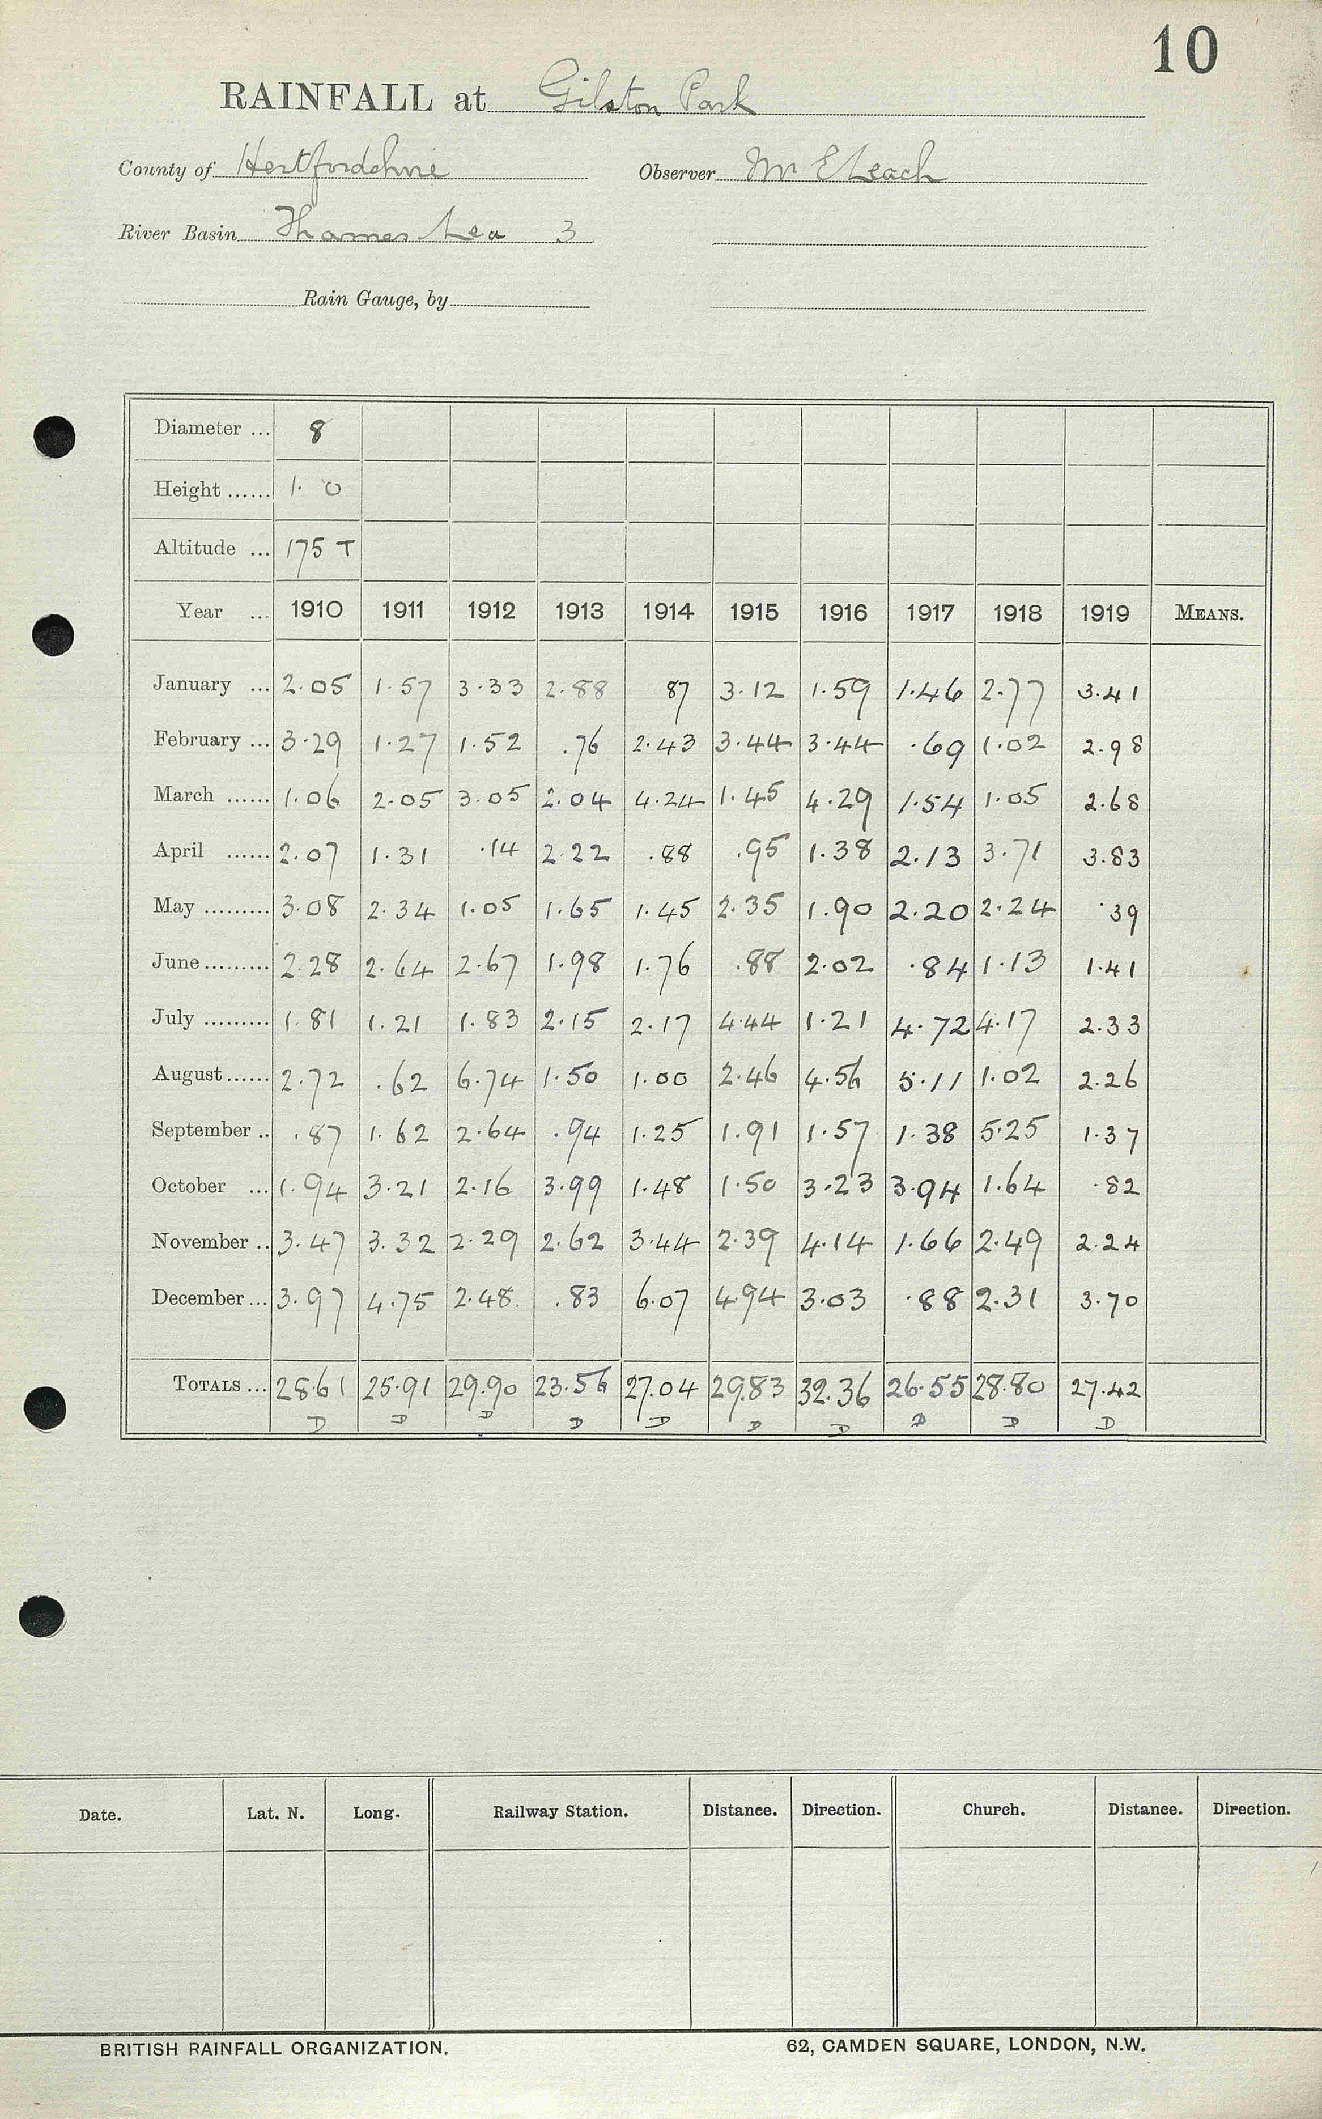 10
RAINFALL at Gilston Park
County of Hertfordshire Observer Mr E Leach
River Basin Thames Lea 3
Rain Gauge, by
Diameter ... 8
Height ...... 1. 0
Altitude ... 175 T
Year ... 1910 1911 1912 1913 1914 1915 1916 1917 1918 1919 MEANS.
January ... 2.05 1.57 3.33 2.88 87 3.12 1.59 1.46 2.77 3.41
February ... 3.29 1.27 1.52 .76 2.43 3.44 3.44 .69 1.02 2.98
March ...... 1.06 2.05 3.05 2.04 4.24 1.45 4.29 1.54 1.05 2.68
April ...... 2.07 1.31 .14 2.22 .88 .95 1.38 2.13 3.71 3.83
May ......... 3.08 2.34 1.05 1.65 1.45 2.35 1.90 2.20 2.24 .39
June ......... 2.28 2.64 2.67 1.98 1.76 .88 2.02 .84 1.13 1.41
July ......... 1.81 1.21 1.83 2.15 2.17 4.44 1.21 4.72 4.17 2.33
August ...... 2.72 .62 6.74 1.50 1.00 2.46 4.56 5.11 1.02 2.26
September .. .87 1.62 2.64 .94 1.25 1.91 1.57 1.38 5.25 1.37
October ... 1.94 3.21 2.16 3.99 1.48 1.50 3.23 3.94 1.64 .82
November .. 3.47 3.32 2.29 2.62 3.44 2.39 4.14 1.66 2.49 2.24
December ... 3.97 4.75 2.48 .83 6.07 4.94 3.03 .88 2.31 3.70
TOTALS ... 28.61 25.91 29.90 23.56 27.04 29.83 32.36 26.55 28.80 27.42
D D D D D D D D D D
Date. Lat. N. Long. Railway Station. Distance. Direction. Church. Distance. Direction.
BRITISH RAINFALL ORGANIZATION. 62, CAMDEN SQUARE, LONDON, N.W.